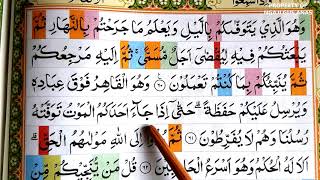 وَهُوَ الَّذِي يَتَوَفّٰىكُمْ بِاللَّيْلِ وَيَعْلَمُ مَا جَرَحْتُمْ بِالنَّهَارِ ثُمَّ
يَبْعَثُكُمْ فِيْهِ لِيُقْضٰٓى اَجَلٌ مُّسَمًّى ثُمَّ اِلَيْهِ مَرْجِعُكُمْ
ثُمَّ يُنَبِّئُكُمْ بِمَا كُنْتُمْ تَعْمَلُوْنَ ﴿٦٠﴾ وَهُوَ الْقَاهِرُ فَوْقَ عِبَادِهٖ
وَيُرْسِلُ عَلَيْكُمْ حَفَظَةً حَتّٰٓى اِذَا جَآءَ اَحَدَكُمُ الْمَوْتُ تَوَفَّتْهُ
رُسُلُنَا وَهُمْ لَا يُفَرِّطُوْنَ ﴿٦١﴾ ثُمَّ رُدُّوْٓا اِلَى اللّٰهِ مَوْلٰىهُمُ الْحَقِّ
اَلَا لَهُ الْحُكْمُ وَهُوَ اَسْرَعُ الْحَاسِبِيْنَ ﴿٦٢﴾ قُلْ مَنْ يُّنَجِّيْكُمْ مِّنْ